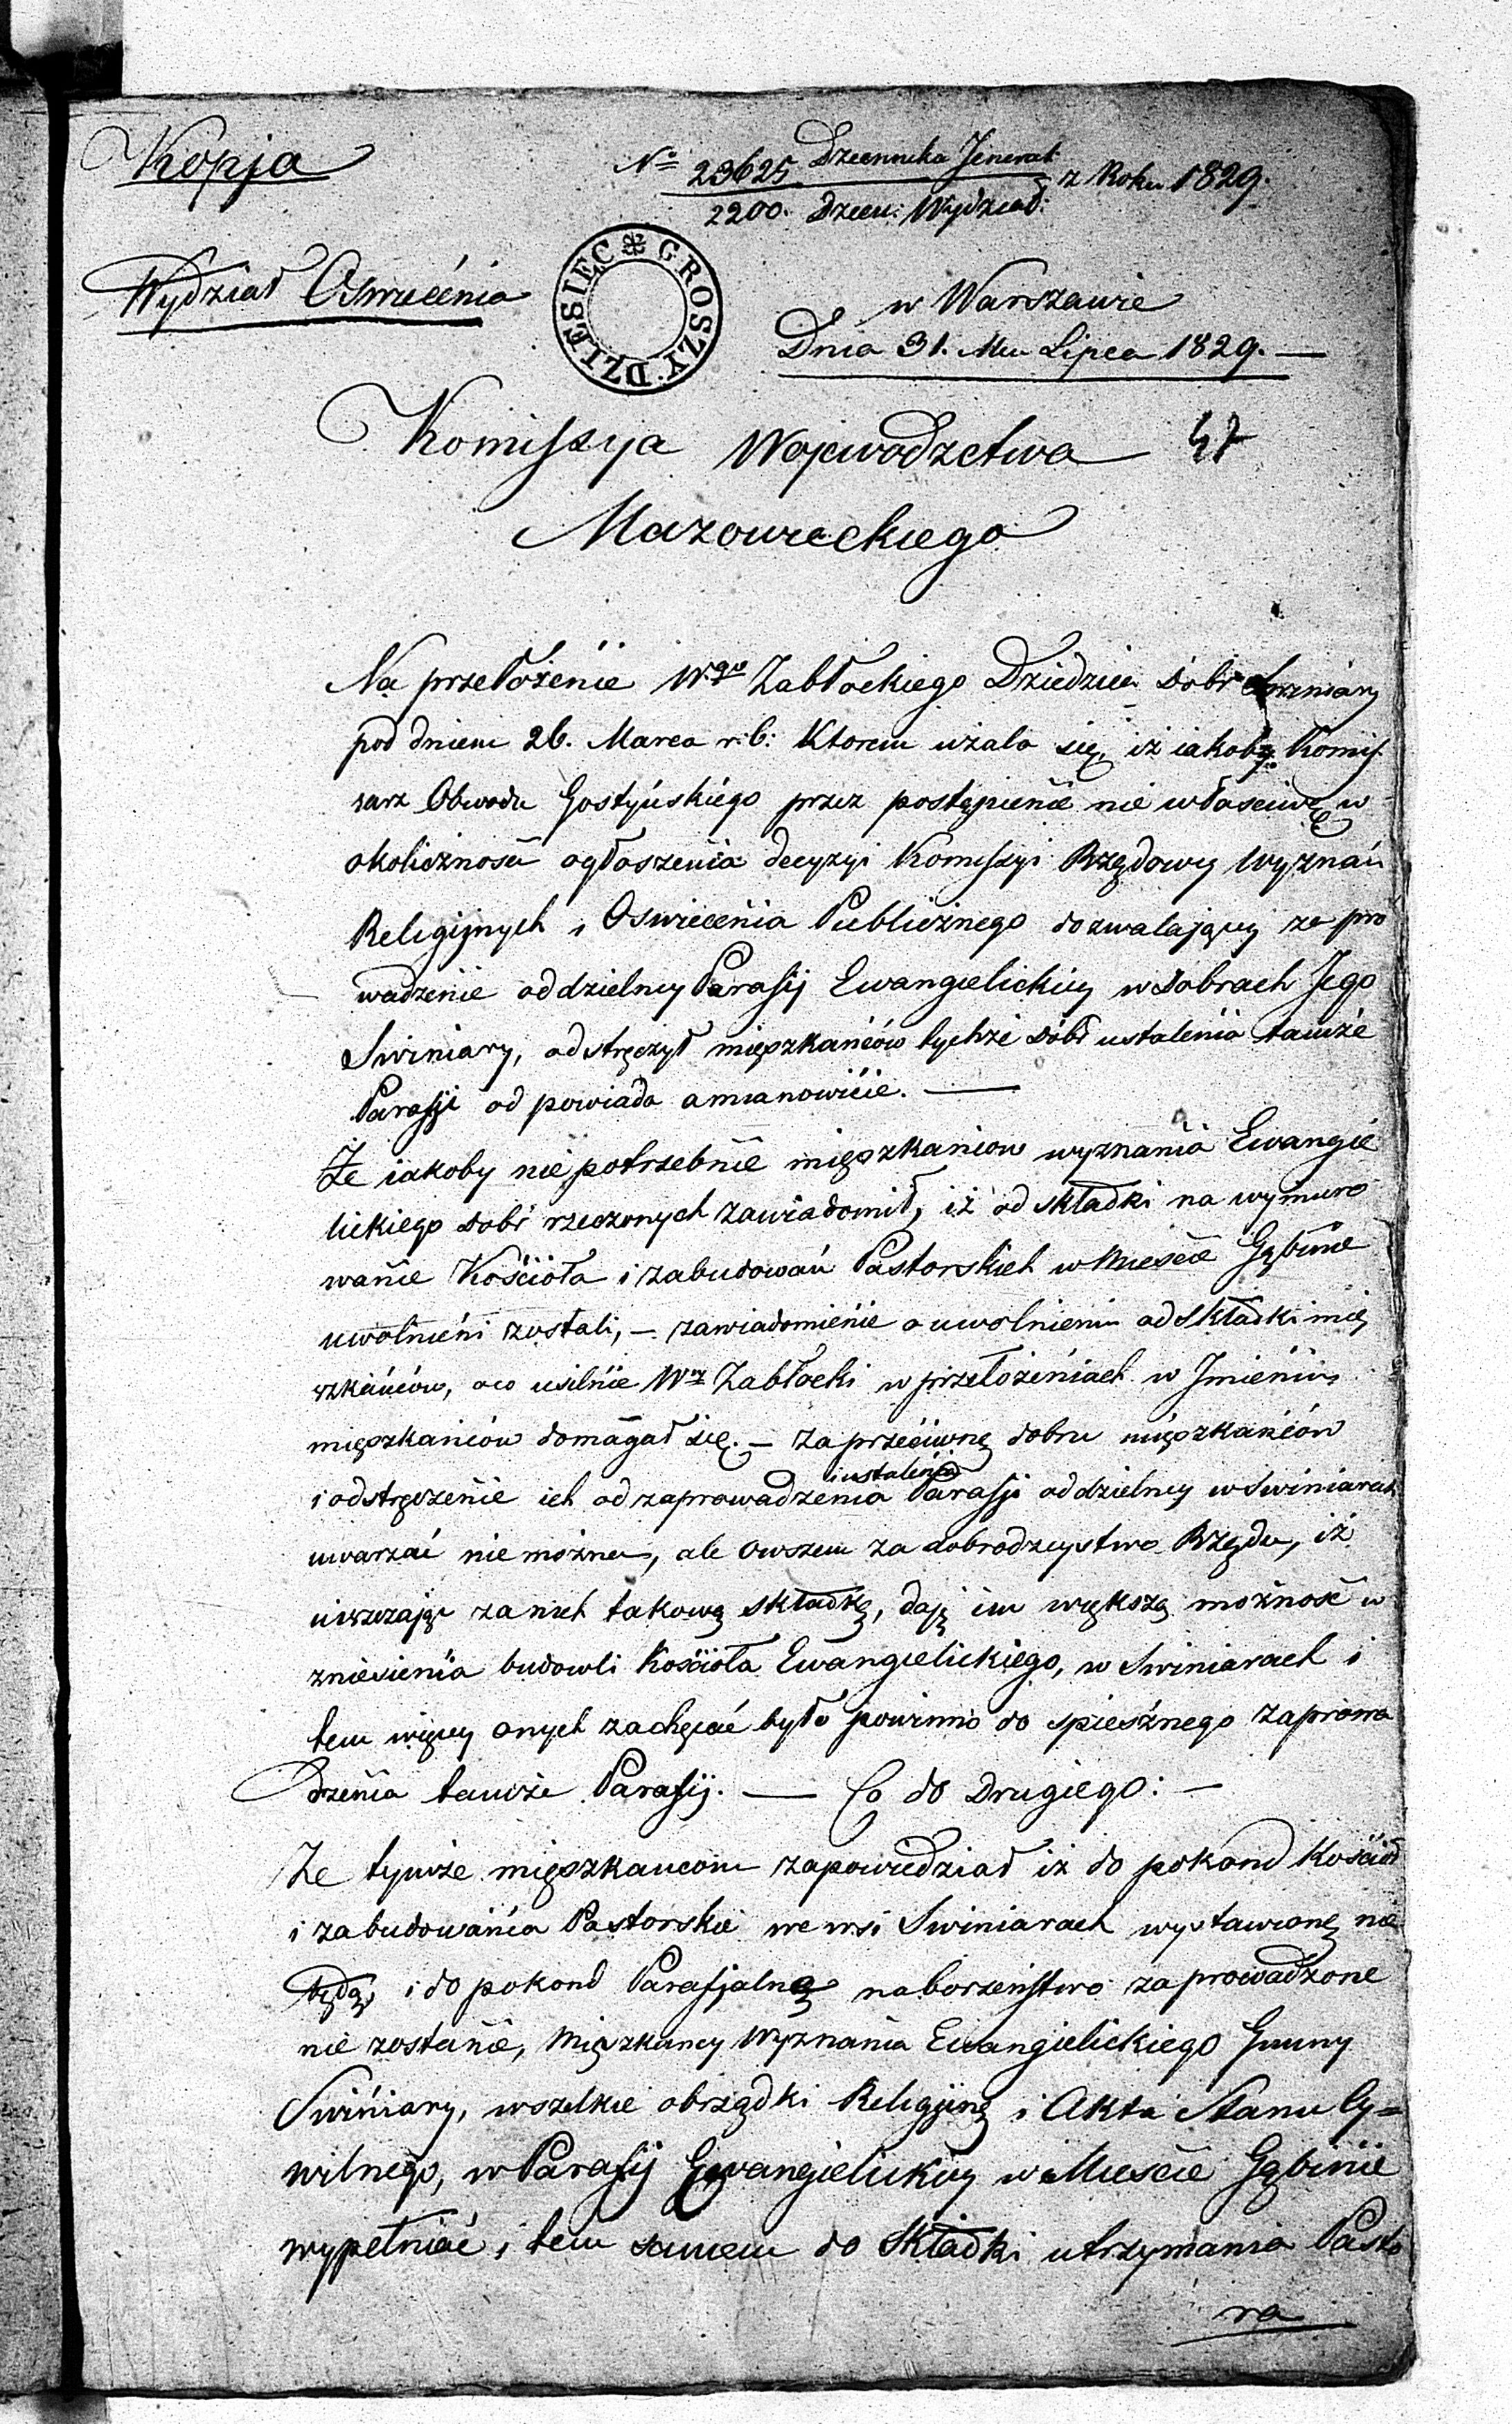 Kopja
No 23625 Dziennika Jeneral: z Roku 1829.
2200. Dzien: Wydział:
Wydział Oswiecénia
DZIESIĘC GROSZY
w Warszawie
Dnia 31. Mca Lipca 1829. —
47
Komissya Wojewodzctwa
Mazowieckiego
Na przełożenie Wgo Zabłockiego Dziedzica Dobr Swiniary
pod dniem 26. Marca r: b: Ktorem użala się, iż iakoby Komis
sarz Obwodu Gostyńskiego przez postąpienie nie właściwe w
okoliczności ogłoszenia decyzyi Komissyi Rządowey Wyznań
Religijnych i Oswiecenia Publicznego dozwalaiącey zapro
wadzenie oddzielney Parafij Ewangielickiey w Dobrach Jego
Swiniary, odstręczył mięszkańców tychże Dóbr ustalenia tamże
Parafji od powiada amianowicie. —
Że iakoby niepotrzebnie mięszkaniow wyznania Ewangie
lickiego Dobr rzeczonych zawiadomił, iż od składki na wymuro
wanie Kościoła i zabudowań Pastorskich w Miescie Gąbinie
uwolnieni zostali, — zawiadomienie o uwolnieniu od Składki mię
szkańców, oco usilnie Wny Zabłocki w przełożeniach w Jmieniu
mięszkańców domagał się. — za przeciwne dobru mięszkańców
i odstręczenie ich od zaprowadzenia i ustalenia Parafji oddzielney w Swiniarach
uwarzać niemożna, ale owszem za dobrodzieystwo Rządu, iż
uiszczając za nich takową składkę, daję im większą możność w
zniesienia budowli Kościoła Ewangielickiego, w Swiniarach i
tem więcey onych zachęcać było powinno do spiesznego zaprowa
dzenia tamże Parafij. — Co do Drugiego: —
Że tymże mięszkancom zapowiedział iż do pokond Kościoł
i zabudowania Pastorskie we wsi Swiniarach wystawione nie
będą, i do pokond Parafjalne naborzeństwo zaprowadzone
nie zostanie, Mięszkancy Wyznania Ewangielickiego Gminy
Swiniary, wszelkie obrządki Religijne i Akta Stanu Cy=
wilnego, w Parafij Ewangielickiey w Miescie Gąbinie
wypełniać, i tem samem do Składki utrzymania Pasto
ra